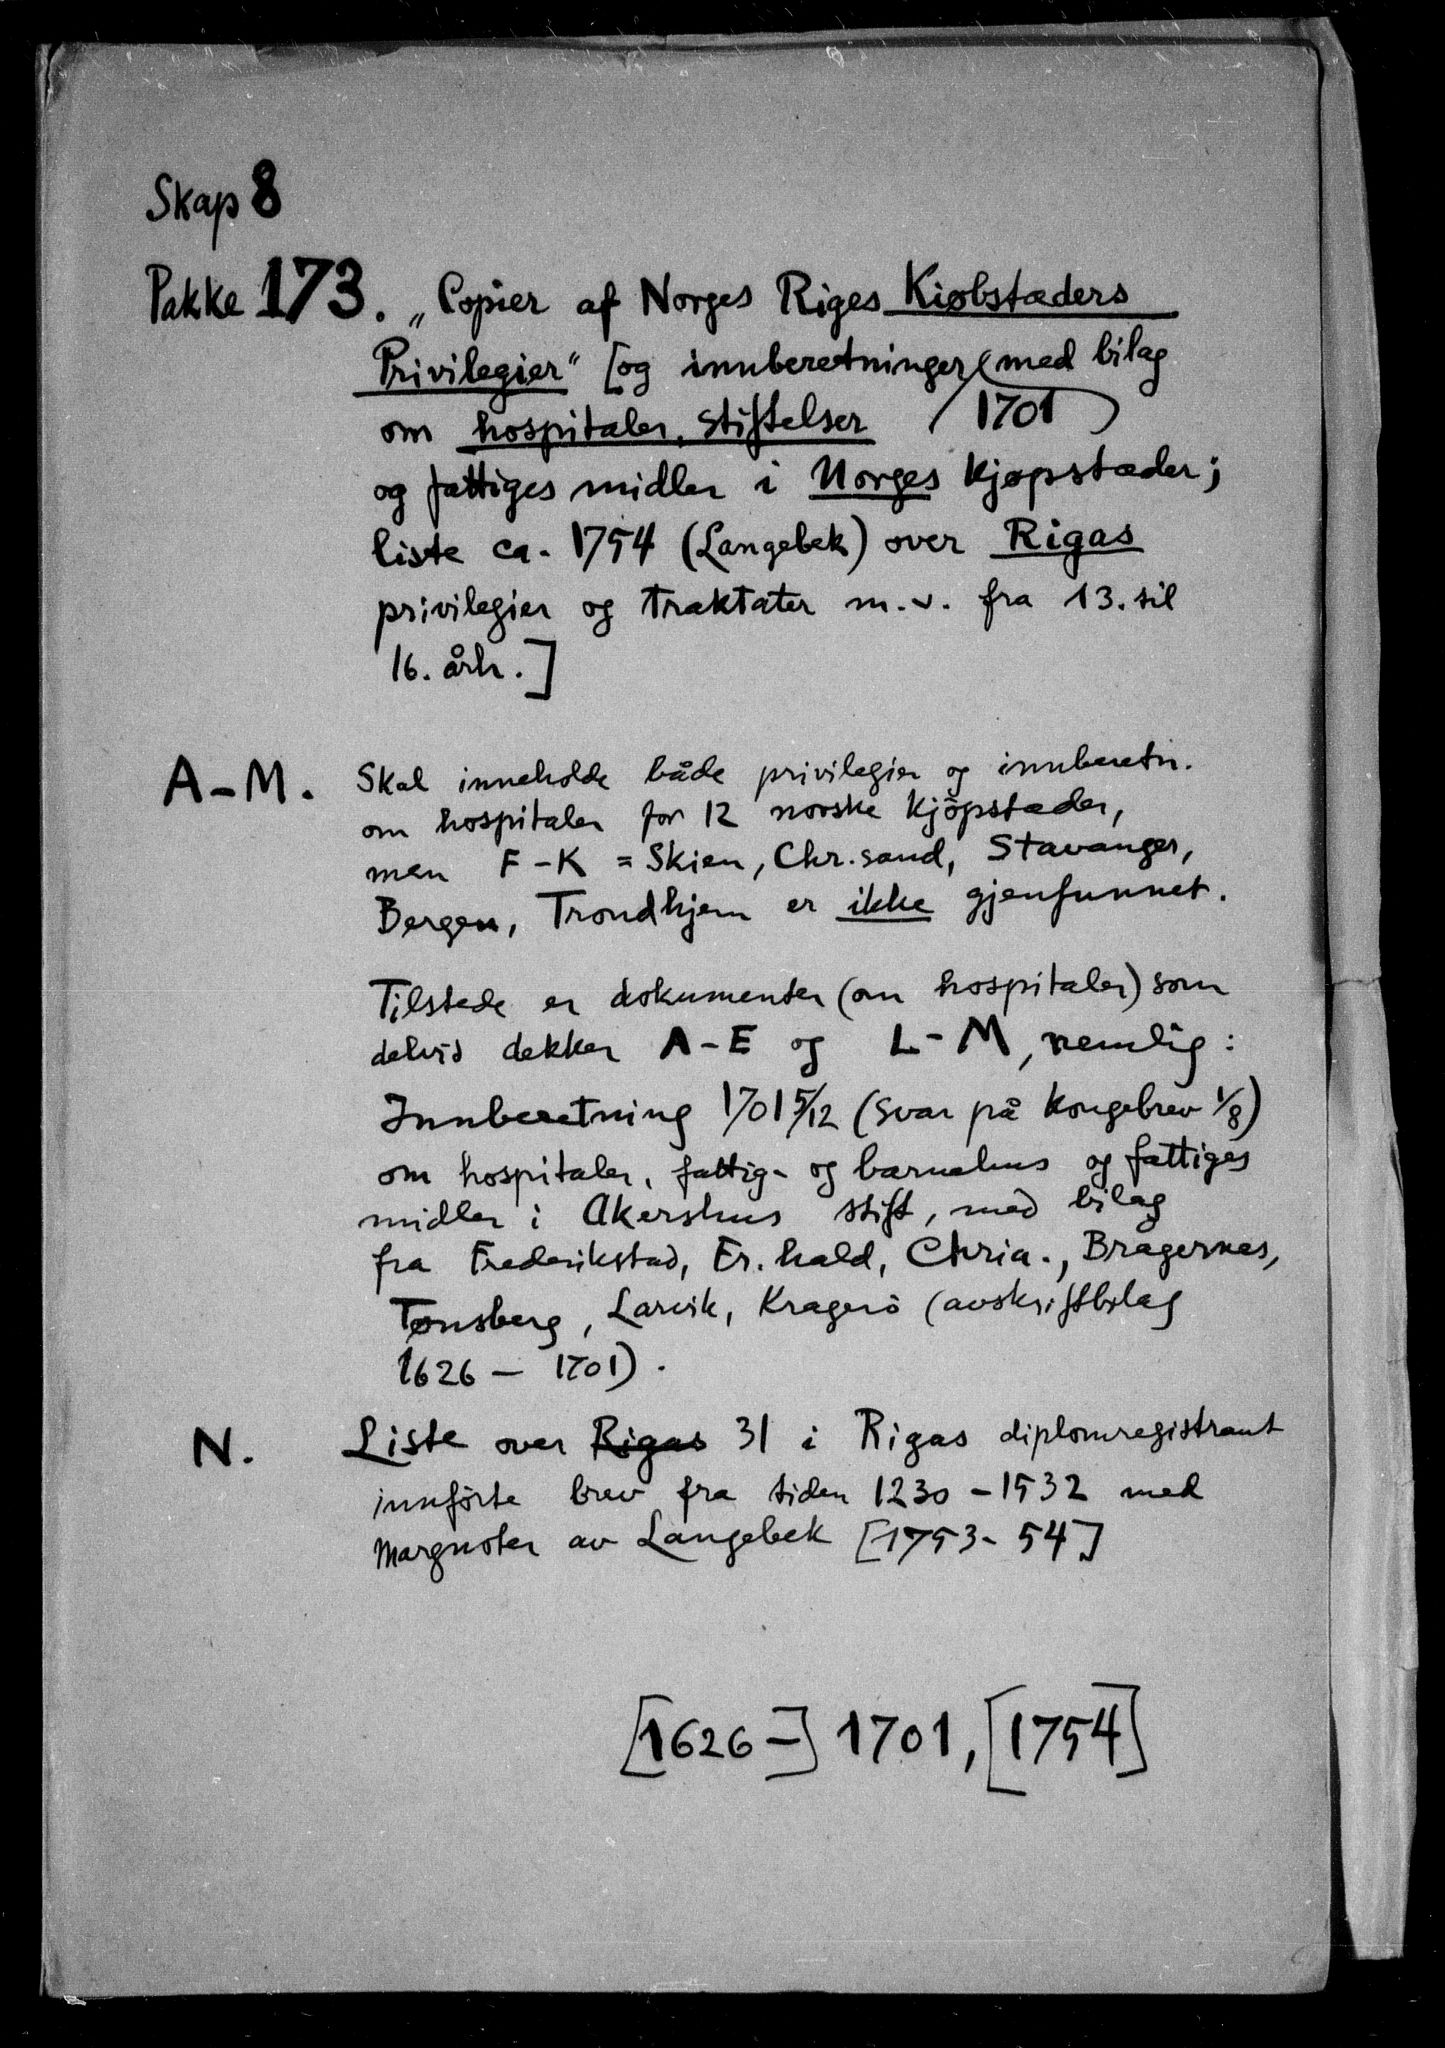 Skap 8
Pakke 173. „Copier af Norges Riges Kiøbstæders
Privilegier" [og innberetninger med bilag
om hospitaler, stiftelser (1701)
og fattiges midler i Norges kjøpstæder;
liste ca. 1754 (Langebek) over Rigas
privilegier og traktater m.v. fra 13. til
16. årh.]
A-M. Skal inneholde både privilegier og innberetn.
om hospitaler for 12 norske kjöpstæder,
men F-K = Skien, Chr.sand, Stavanger,
Bergen, Trondhjem er ikke gjenfunnet.
Tilstede er dokumenter (om hospitaler) som
delvis dekker A-E og L-M, nemlig:
Innberetning 1701 5/12 (svar på kongebrev 1/8)
om hospitaler, fattig- og barnehus og fattiges
midler i Akershus stift, med bilag
fra Frederikstad, Fr.hald, Chria., Bragernes,
Tønsberg, Larvik, Kragerö (avskriftbilag
1626 - 1701).
N. Liste over Rigas 31 i Rigas diplomregistrant
innförte brev fra tiden 1230 - 1532 med
margnoter av Langebek [1753-54]
[1626 -] 1701, [1754]